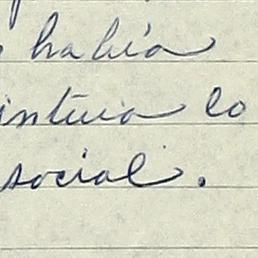 había
intuia lo
social.